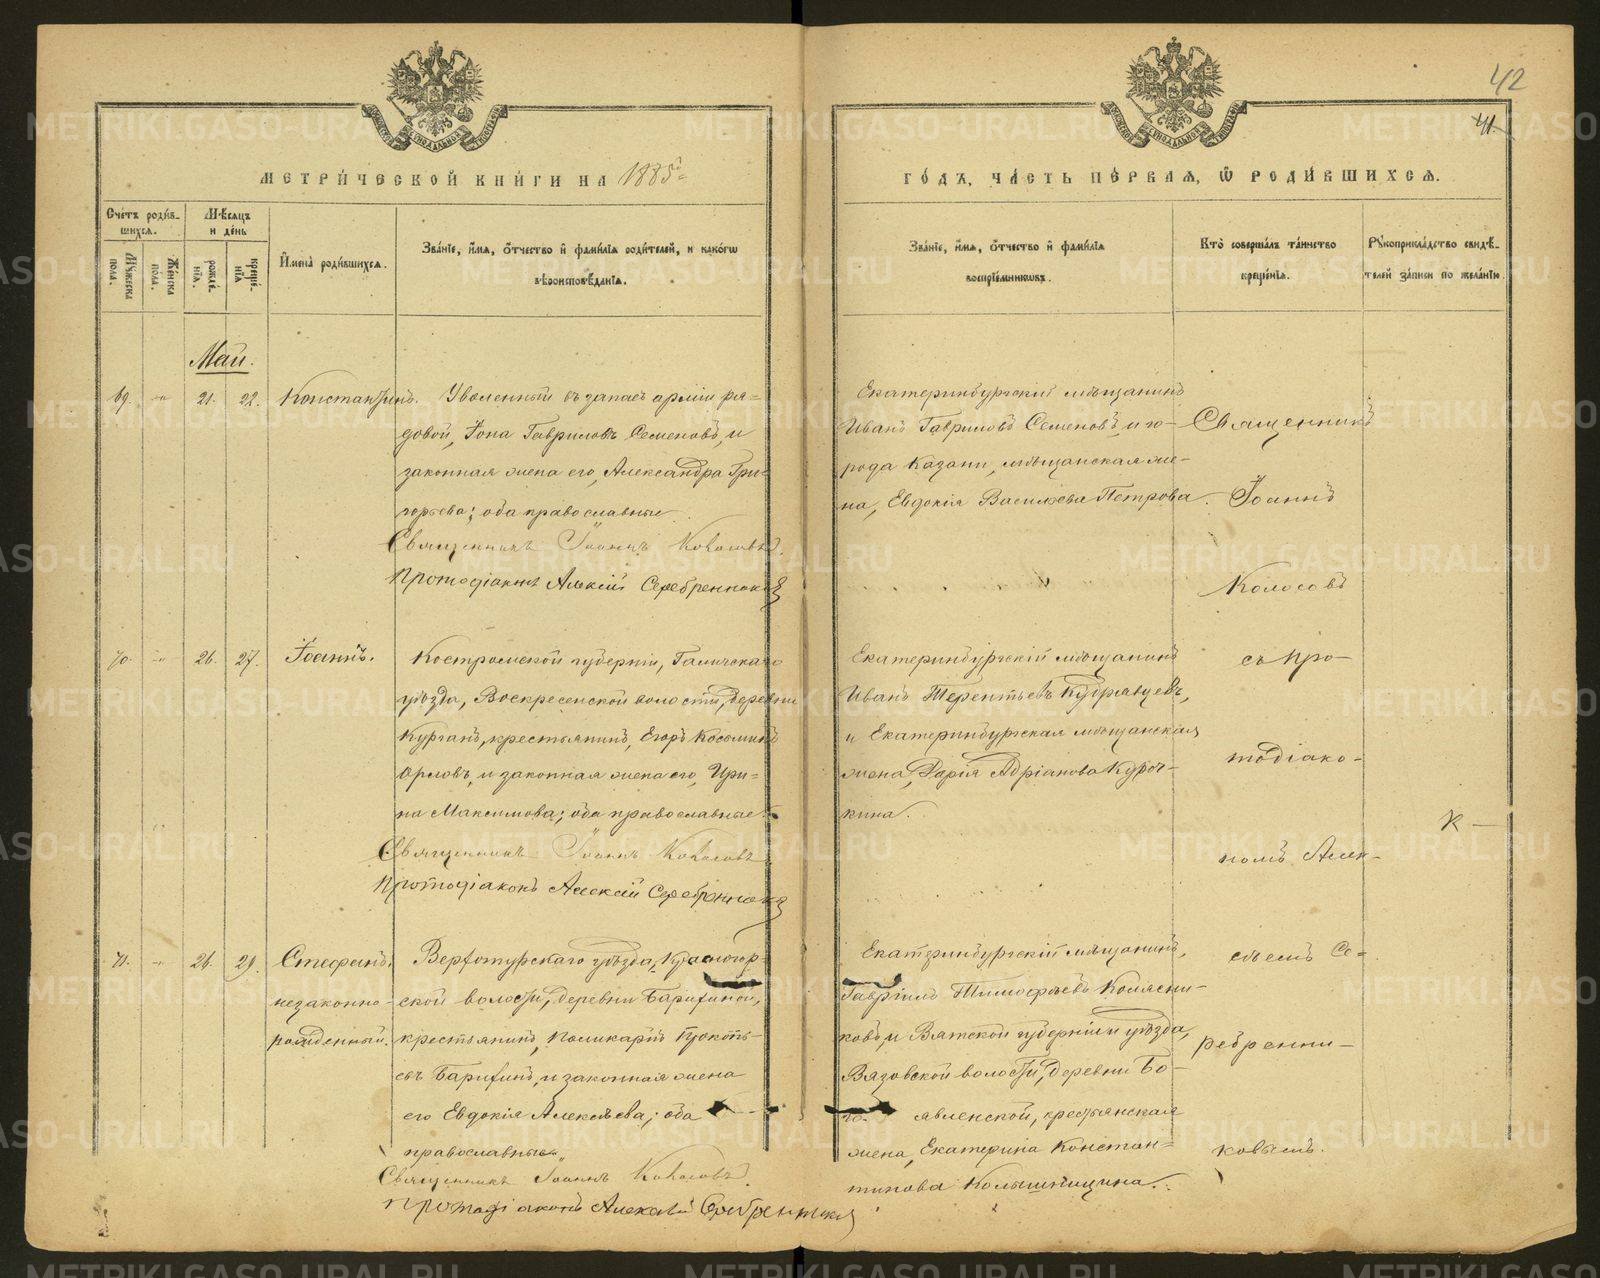 42
41.
МЕТРИ́ЧЕСКОЙ КНИ́ГИ НА 1885 ГО́ДЪ, ЧА́СТЬ ПЕ́РВАЯ, Ѿ РОДИ́ВШИХСЯ.
Сче́тъ роди́в-
шихся.
Му́жеска пола.
Же́нска пола.
Мѣсяцъ
и де́нь
рожде́-
нїѧ.
креще́-
нїѧ
И҆мена̀ роди́вшихся.
Зва́нїе, и҆́мѧ, ѻ҆́тчество и҆ фами́лїѧ роди́телей, и како́гѡ
вѣроисповѣ́данїѧ.
Зва́нїе, и҆́мѧ, ѻ҆́тчество и҆ фами́лїѧ
воспрїе́мникѡвъ.
Кто̀ соверша́лъ та́инство
креще́нїѧ.
Рꙋкоприкла́дство свидѣ́-
телей за́писи по жела́нїю.
Май.
69. -"- 21. 22. Константинъ.
Уволенный въ запасъ арміи ря-
довой, Іона Гавриловъ Семеновъ, и
законная жена его, Александра Гри-
горьева; оба православные.
Священникъ Іоаннъ Колосовъ.
Протодіаконъ Алексій Серебренников
Екатеринбургскій мѣщанинъ
Иванъ Гавриловъ Семеновъ, и го-
рода Казани, мѣщанская же-
на, Евдокія Васильева Петрова.
Священникъ
Іоаннъ
Колосовъ
70. -"- 26. 27. Іоаннъ.
Костромской губерніи, Галичскаго
уѣзда, Воскресенской волости, деревни
Курганъ, крестьянинъ, Егоръ Косьминъ
Орловъ, и законная жена его, Ири-
на Максимова; оба православные.
Священникъ Іоаннъ Колосовъ
Протодіаконъ Алексій Серебренников
Екатеринбургскій мѣщанинъ
Иванъ Терентьевъ Кудрявцевъ,
и Екатеринбургская мѣщанская
жена, Дарія Адріанова Куроч-
кина.
съ про-
тодіако-
номъ Алек-
71. -"- 26. 29. Стефанъ,
незаконно-
рожденный.
Верхотурскаго уѣзда, Красногор-
ской волости, деревни Бариѳиной,
крестьянинъ, Поликарпъ Прокопь-
евъ Бариѳинъ, и законная жена
его Евдокія Алексѣева; оба
православные.
Священникъ Іоаннъ Колосовъ.
Протодіаконъ Алексій Серебренников
Екатеринбургскій мѣщанинъ,
Гавріилъ Тимоѳеевъ Колясни-
ковъ, и Вятской губерніи и уѣзда,
Вязовской волости, деревни Бо-
го- явленской, крестьянская
жена, Екатерина Констан-
тинова Колышницина.
сѣемъ Се-
ребренни-
ковымъ.
К —
METRIKI.GASO-URAL.RU